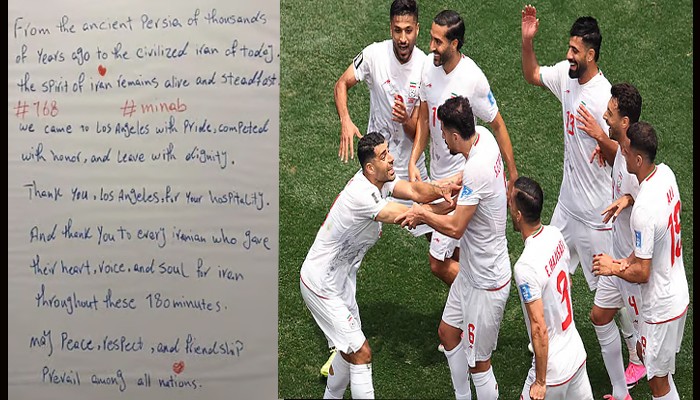 From the ancient Persia of thousands
of years ago to the civilized iran of today.
the spirit of iran remains alive and steadfast.
#168 #minab
we came to Los Angeles with Pride, competed
with honor, and Leave with dignity.
Thank you, Los Angeles, for your hospitality.
And thank you to every iranian who gave
their heart, voice, and soul for iran
throughout these 180 minutes.
may Peace, respect, and friendship
Prevail among all nations.
13
6
3
4